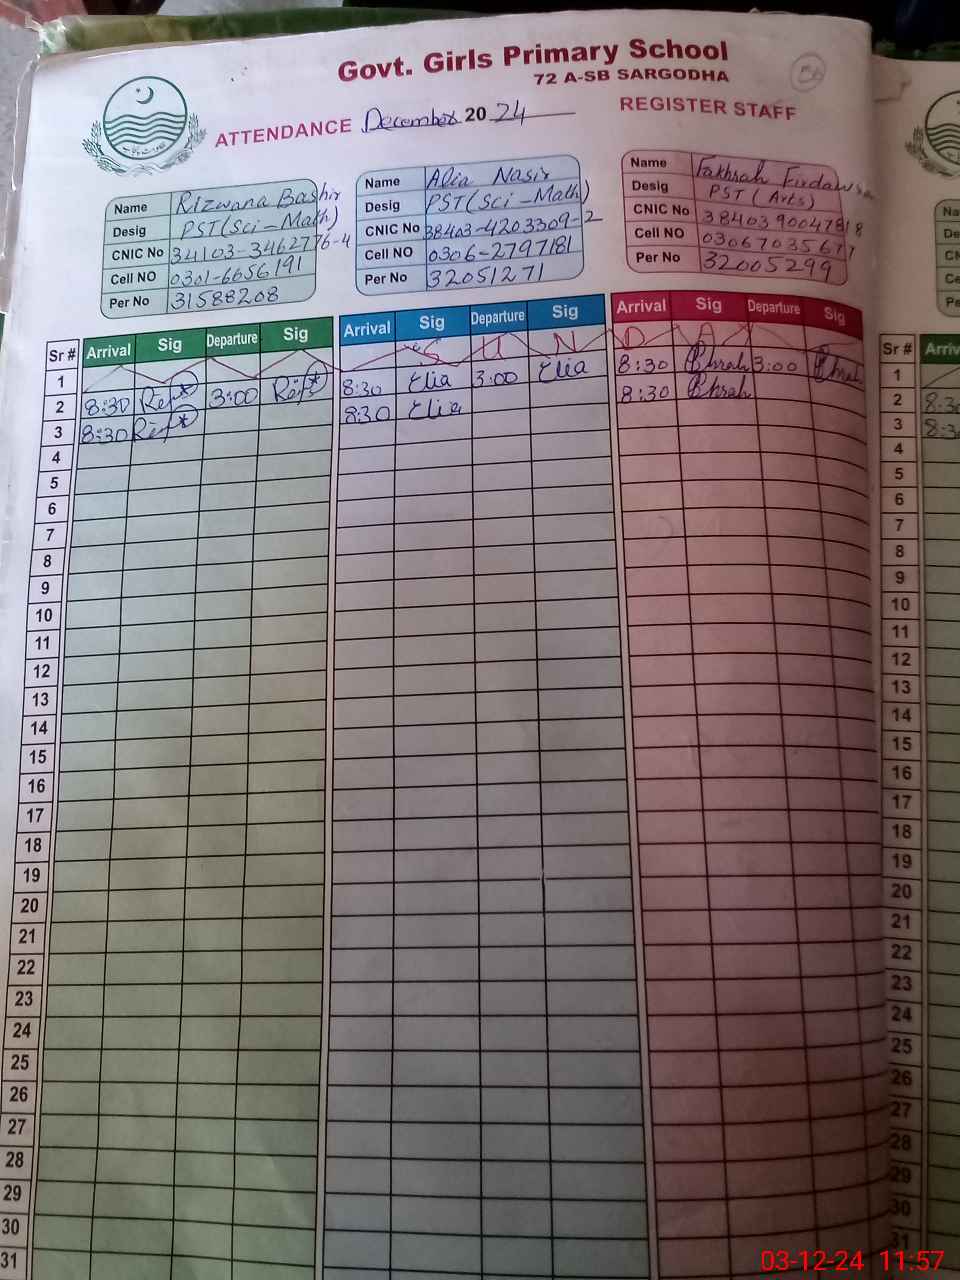 Govt. Girls Primary School
72 A-SB SARGODHA
ATTENDANCE December 2024 REGISTER STAFF
Name Rizwana Bashir
Desig PST(Sci-Math)
CNIC No 34103-3462776-4
Cell NO 0301-6656191
Per No 31588208
Name Alia Nasir
Desig PST(Sci-Math)
CNIC No 38403-4203309-2
Cell NO 0306-2797181
Per No 32051271
Name Fakhrah Firdaws
Desig PST (Arts)
CNIC No 3840390047818
Cell NO 03067035677
Per No 32005299
Sr # Arrival Sig Departure Sig Arrival Sig Departure Sig Arrival Sig Departure Sig Sr # Arriv
1 S U N D A Y 1
2 8:30 3:00 8:30 Elia 3:00 Elia 8:30 3:00 2 8:30
3 8:30 8:30 Elia 8:30 3 8:30
4 4
5 5
6 6
7 7
8 8
9 9
10 10
11 11
12 12
13 13
14 14
15 15
16 16
17 17
18 18
19 19
20 20
21 21
22 22
23 23
24 24
25 25
26 26
27 27
28 28
29 29
30 30
31 31
03-12-24 11:57